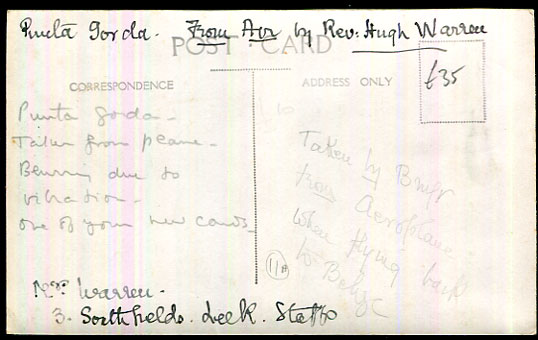 Punta Gorda. From Air by Rev: Hugh Warren
POST CARD
£35
CORRESPONDENCE
ADDRESS ONLY
Punta Gorda -
Taken from plane -
Blurring due to
vibration -
one of your new cards
Taken by
from Aeroplane.
when flying back
to Belize
11
Warren.
3. Southfields. Leek. Staffs